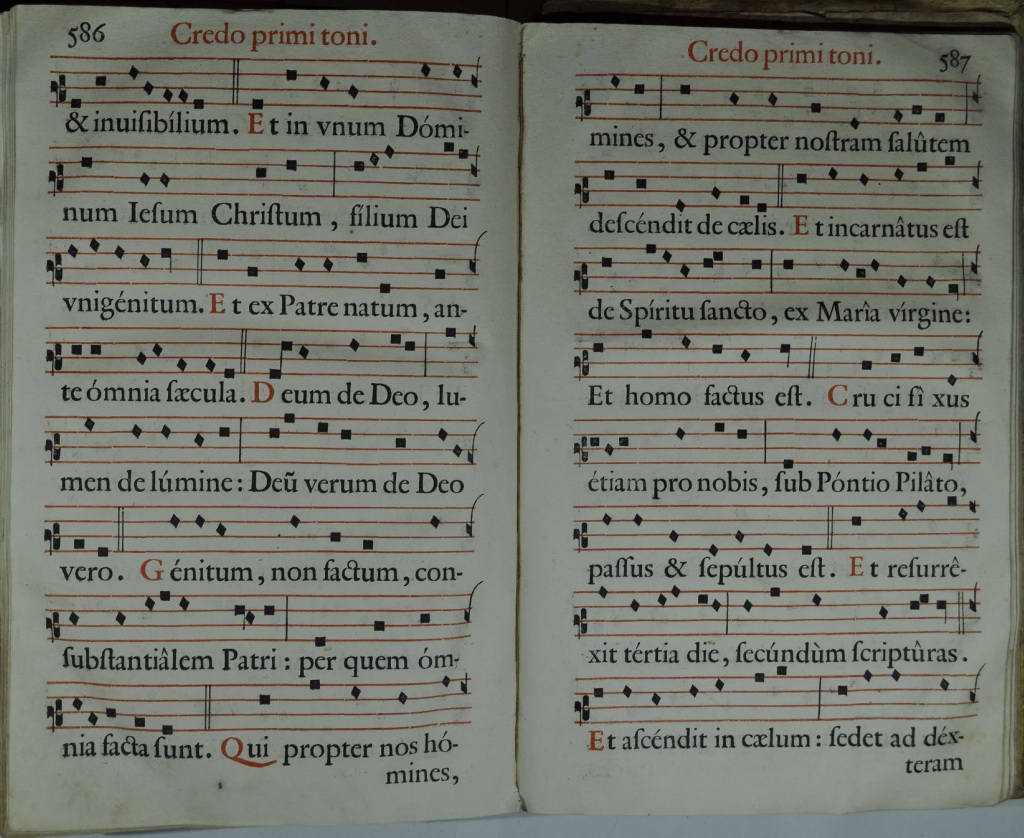 586 Credo primi toni.
& inuiſibílium. Et in vnum Dómi-
num Ieſum Chriſtum, fílium Dei
vnigénitum. Et ex Patre natum, an-
te ómnia ſæcula. Deum de Deo, lu-
men de lúmine: Deũ verum de Deo
vero. Génitum, non factum, con-
ſubſtantiâlem Patri: per quem óm-
nia facta ſunt. Qui propter nos hó-
mines,
Credo primi toni. 587
mines, & propter noſtram ſalûtem
deſcéndit de cælis. Et incarnâtus eſt
de Spíritu ſancto, ex Marîa vírgine:
Et homo factus eſt. Cruci fî xus
étiam pro nobis, ſub Póntio Pilâto,
paſſus & ſepúltus eſt. Et reſurrê-
xit tértia die, ſecúndùm ſcriptûras.
Et aſcéndit in cælum: ſedet ad déx-
teram